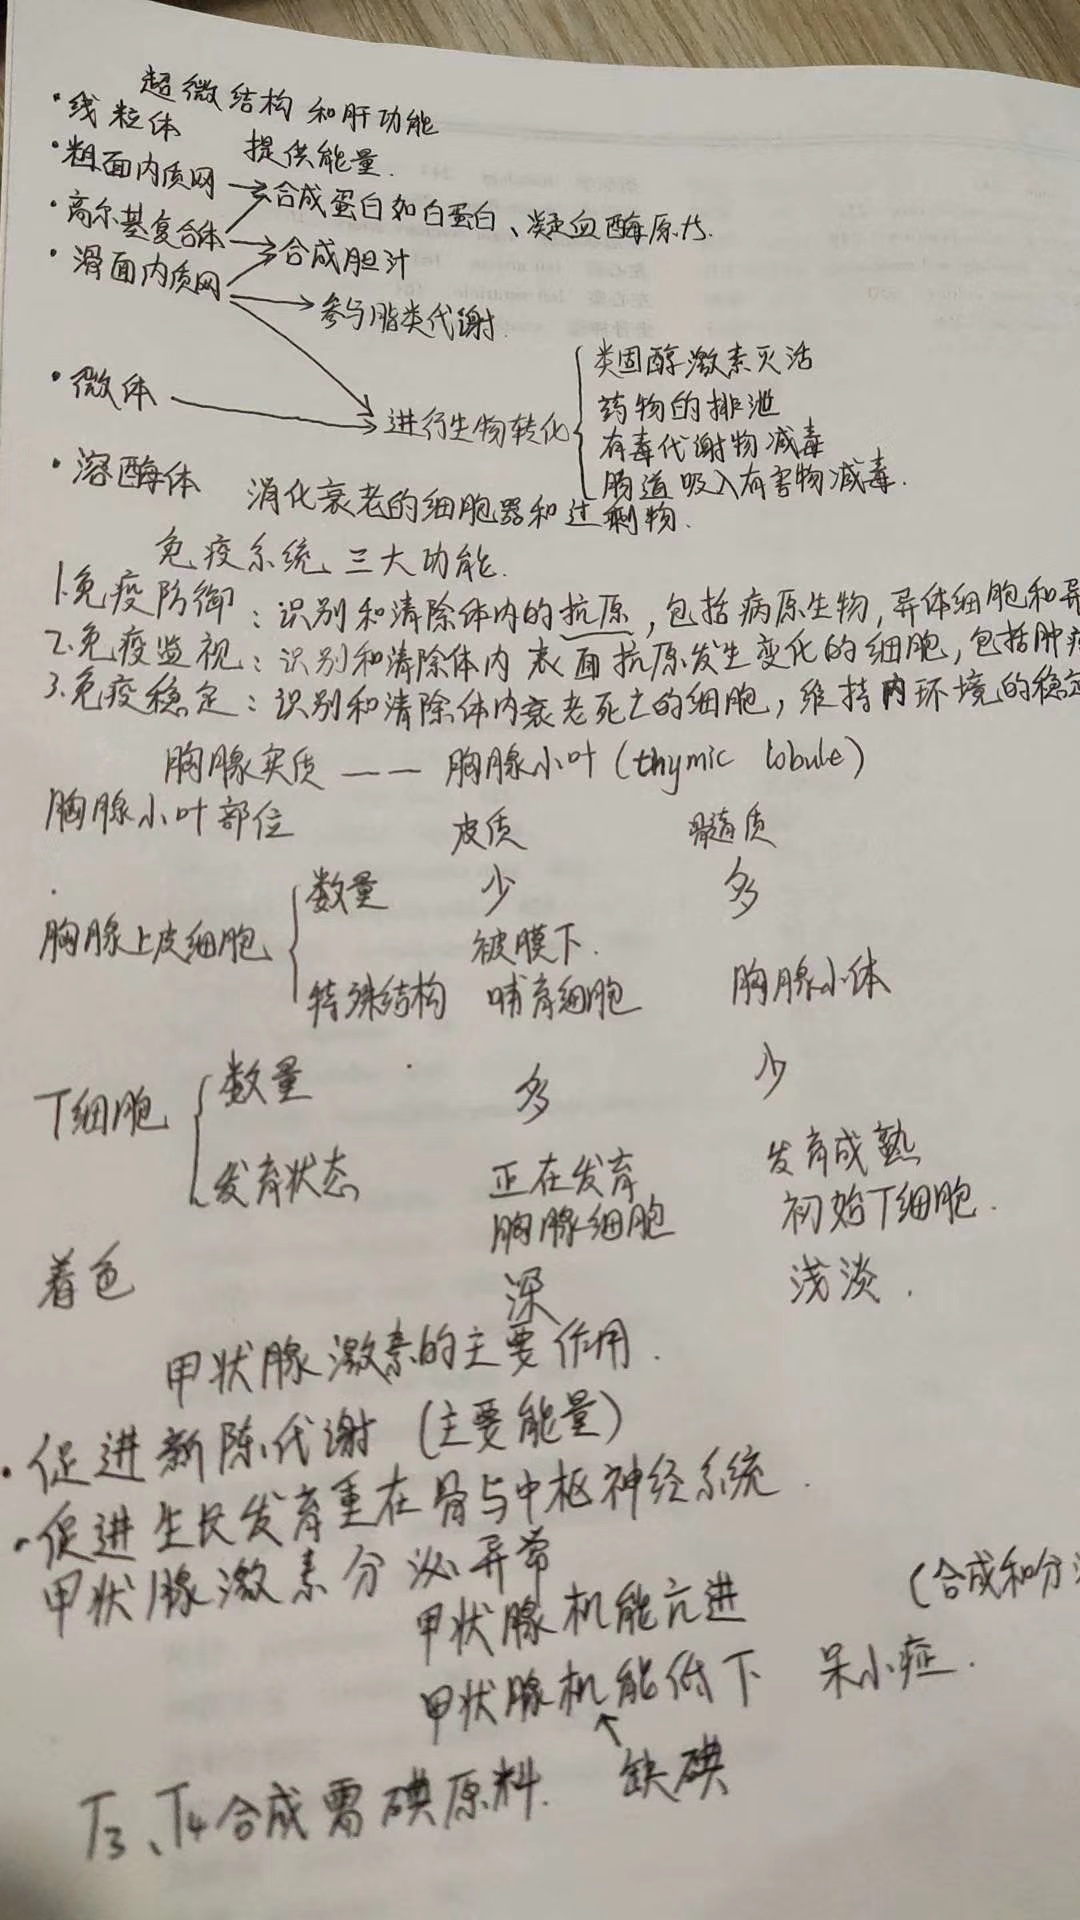 超微结构和肝功能
·线粒体 提供能量.
·粗面内质网 → 合成蛋白如白蛋白、凝血酶原等.
·高尔基复合体 → 合成胆汁
·滑面内质网 → 参与脂类代谢.
类固醇激素灭活
药物的排泄
·微体 → 进行生物转化
有毒代谢物减毒
肠道吸入有害物减毒.
·溶酶体 消化衰老的细胞器和过剩物.
免疫系统三大功能.
1.免疫防御:识别和清除体内的抗原,包括病原生物,异体细胞和异
2.免疫监视:识别和清除体内表面抗原发生变化的细胞,包括肿
3.免疫稳定:识别和清除体内衰老死亡的细胞,维持内环境的稳定
胸腺实质 —— 胸腺小叶(thymic lobule)
胸腺小叶部位 皮质 髓质
数量 少 多
胸腺上皮细胞 被膜下.
特殊结构 哺育细胞 胸腺小体
T细胞 数量 多 少
发育状态 正在发育 发育成熟
胸腺细胞 初始T细胞.
着色 深 浅淡.
甲状腺激素的主要作用.
·促进新陈代谢(主要能量)
·促进生长发育重在骨与中枢神经系统.
甲状腺激素分泌异常
甲状腺机能亢进 (合成和分
甲状腺机能低下 呆小症.
↑
T3、T4合成需碘原料. 缺碘